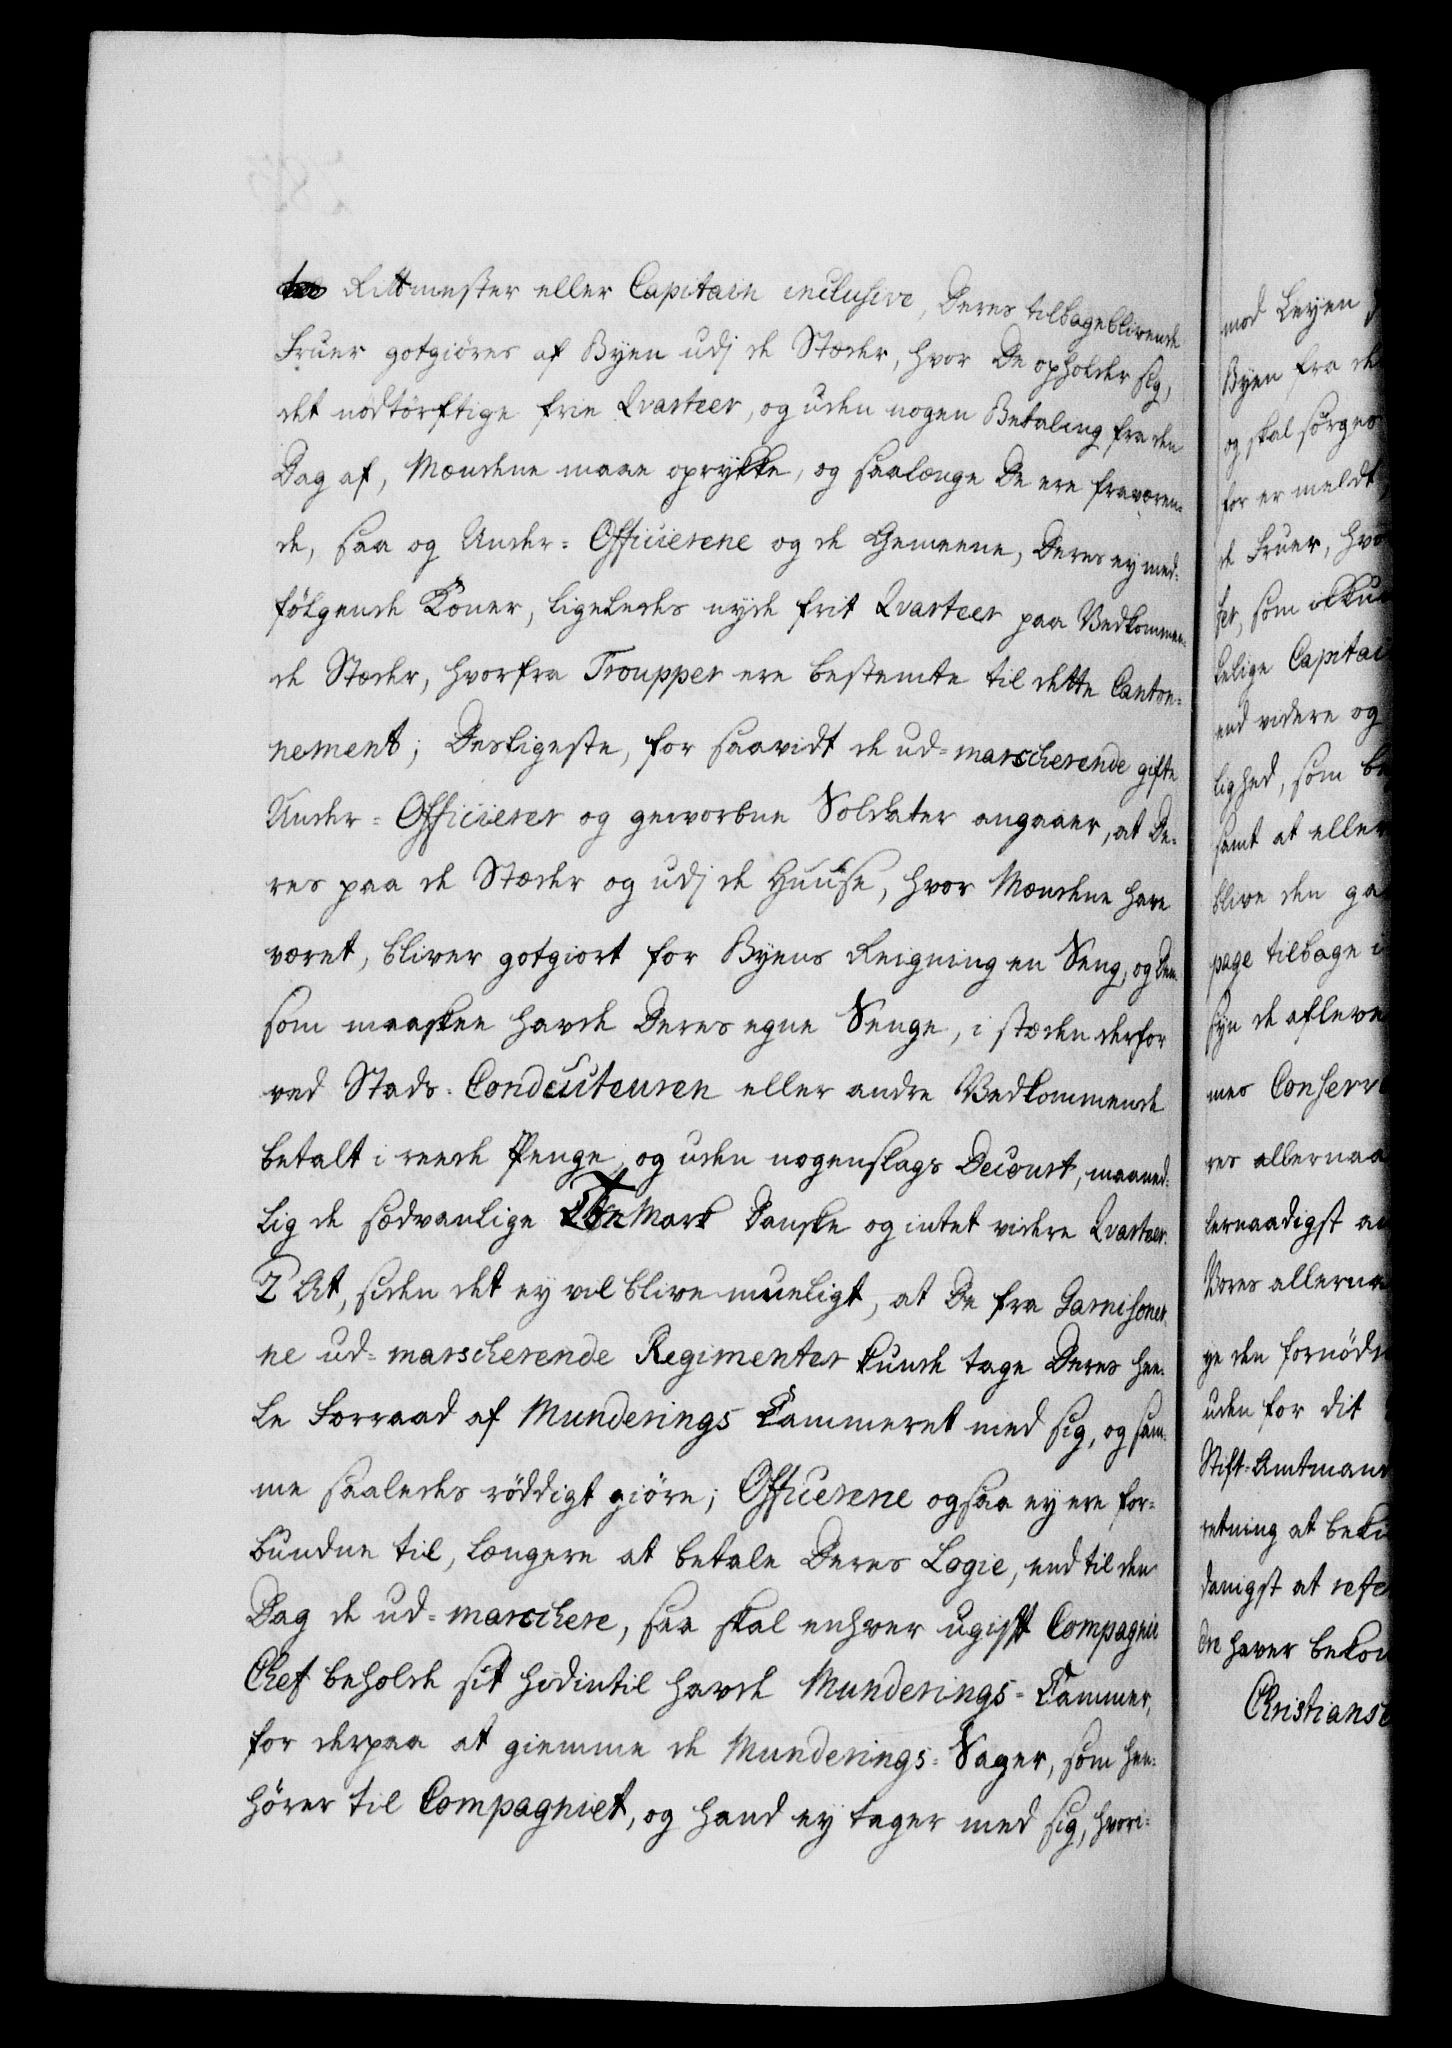 Rittmester eller Capitain inclusive, Deres tilbageblivende
Fruer gotgiöres af Byen udj de Stæder, hvor De opholder sig,
det nödtörftige frie Qvarteer, og uden nogen Betaling fra den
Dag af, Mændene maae oprykke, og saalænge De ere fraværen-
de, saa og Under-Officierene og de Gemeene, Deres ey med-
fölgende Koner, ligeledes nyde frit Qvarteer paa Vedkommen-
de Stæder, hvorfra Troupper ere bestemte til dette Canton-
nement; Desligeste, for saavidt de ud-marscherende gifte
Under-Officierer og geworbne Soldater angaaer, at De-
res paa de Stæder og udj de Huuse, hvor Mændene have
været, bliver gotgiort for Byens Reigning en Seng, og Dem
som maaskee havde Deres egne Senge, i stæden derfor
ved Stads-Conducteuren eller andre Vedkommende
betalt i reede Penge, og uden nogenslags Decourt, maaned-
lig de sædvanlige Mark Danske og intet videre Qvarteer.
2 At, siden det ey vil blive mueligt, at De fra Garnisoner-
ne ud-marscherende Regimenter kunde tage Deres hee-
le Forraad af Munderings Kammeret med sig, og sam-
me saaledes röddigt giöre; Officerene ogsaa ey ere for-
bundne til, længere at betale Deres Logie, end til den
Dag de ud-marschere, saa skal enhver ugift Compagnie
Chef beholde sit hidintil havde Munderings-Kammer,
for derpaa at giemme de Munderings-Sager, som hen-
hörer til Compagniet, og hand ey tager med sig, hvori-
mod Leyen
Byen fra de
og skal sörges
for er meldt
de Fruer, hvo
ser, som
delige Capitai
end videre og
lighed, som be
samt at eller
blive den ga
page tilbage i
syn de afleve
mes Conserv
res allernaa
lernaadigst a
Vores allerna
ye den fornöd
uden for dit
Stift-Amtman
retning at beki
danigst at refe
de haver beko
Christians